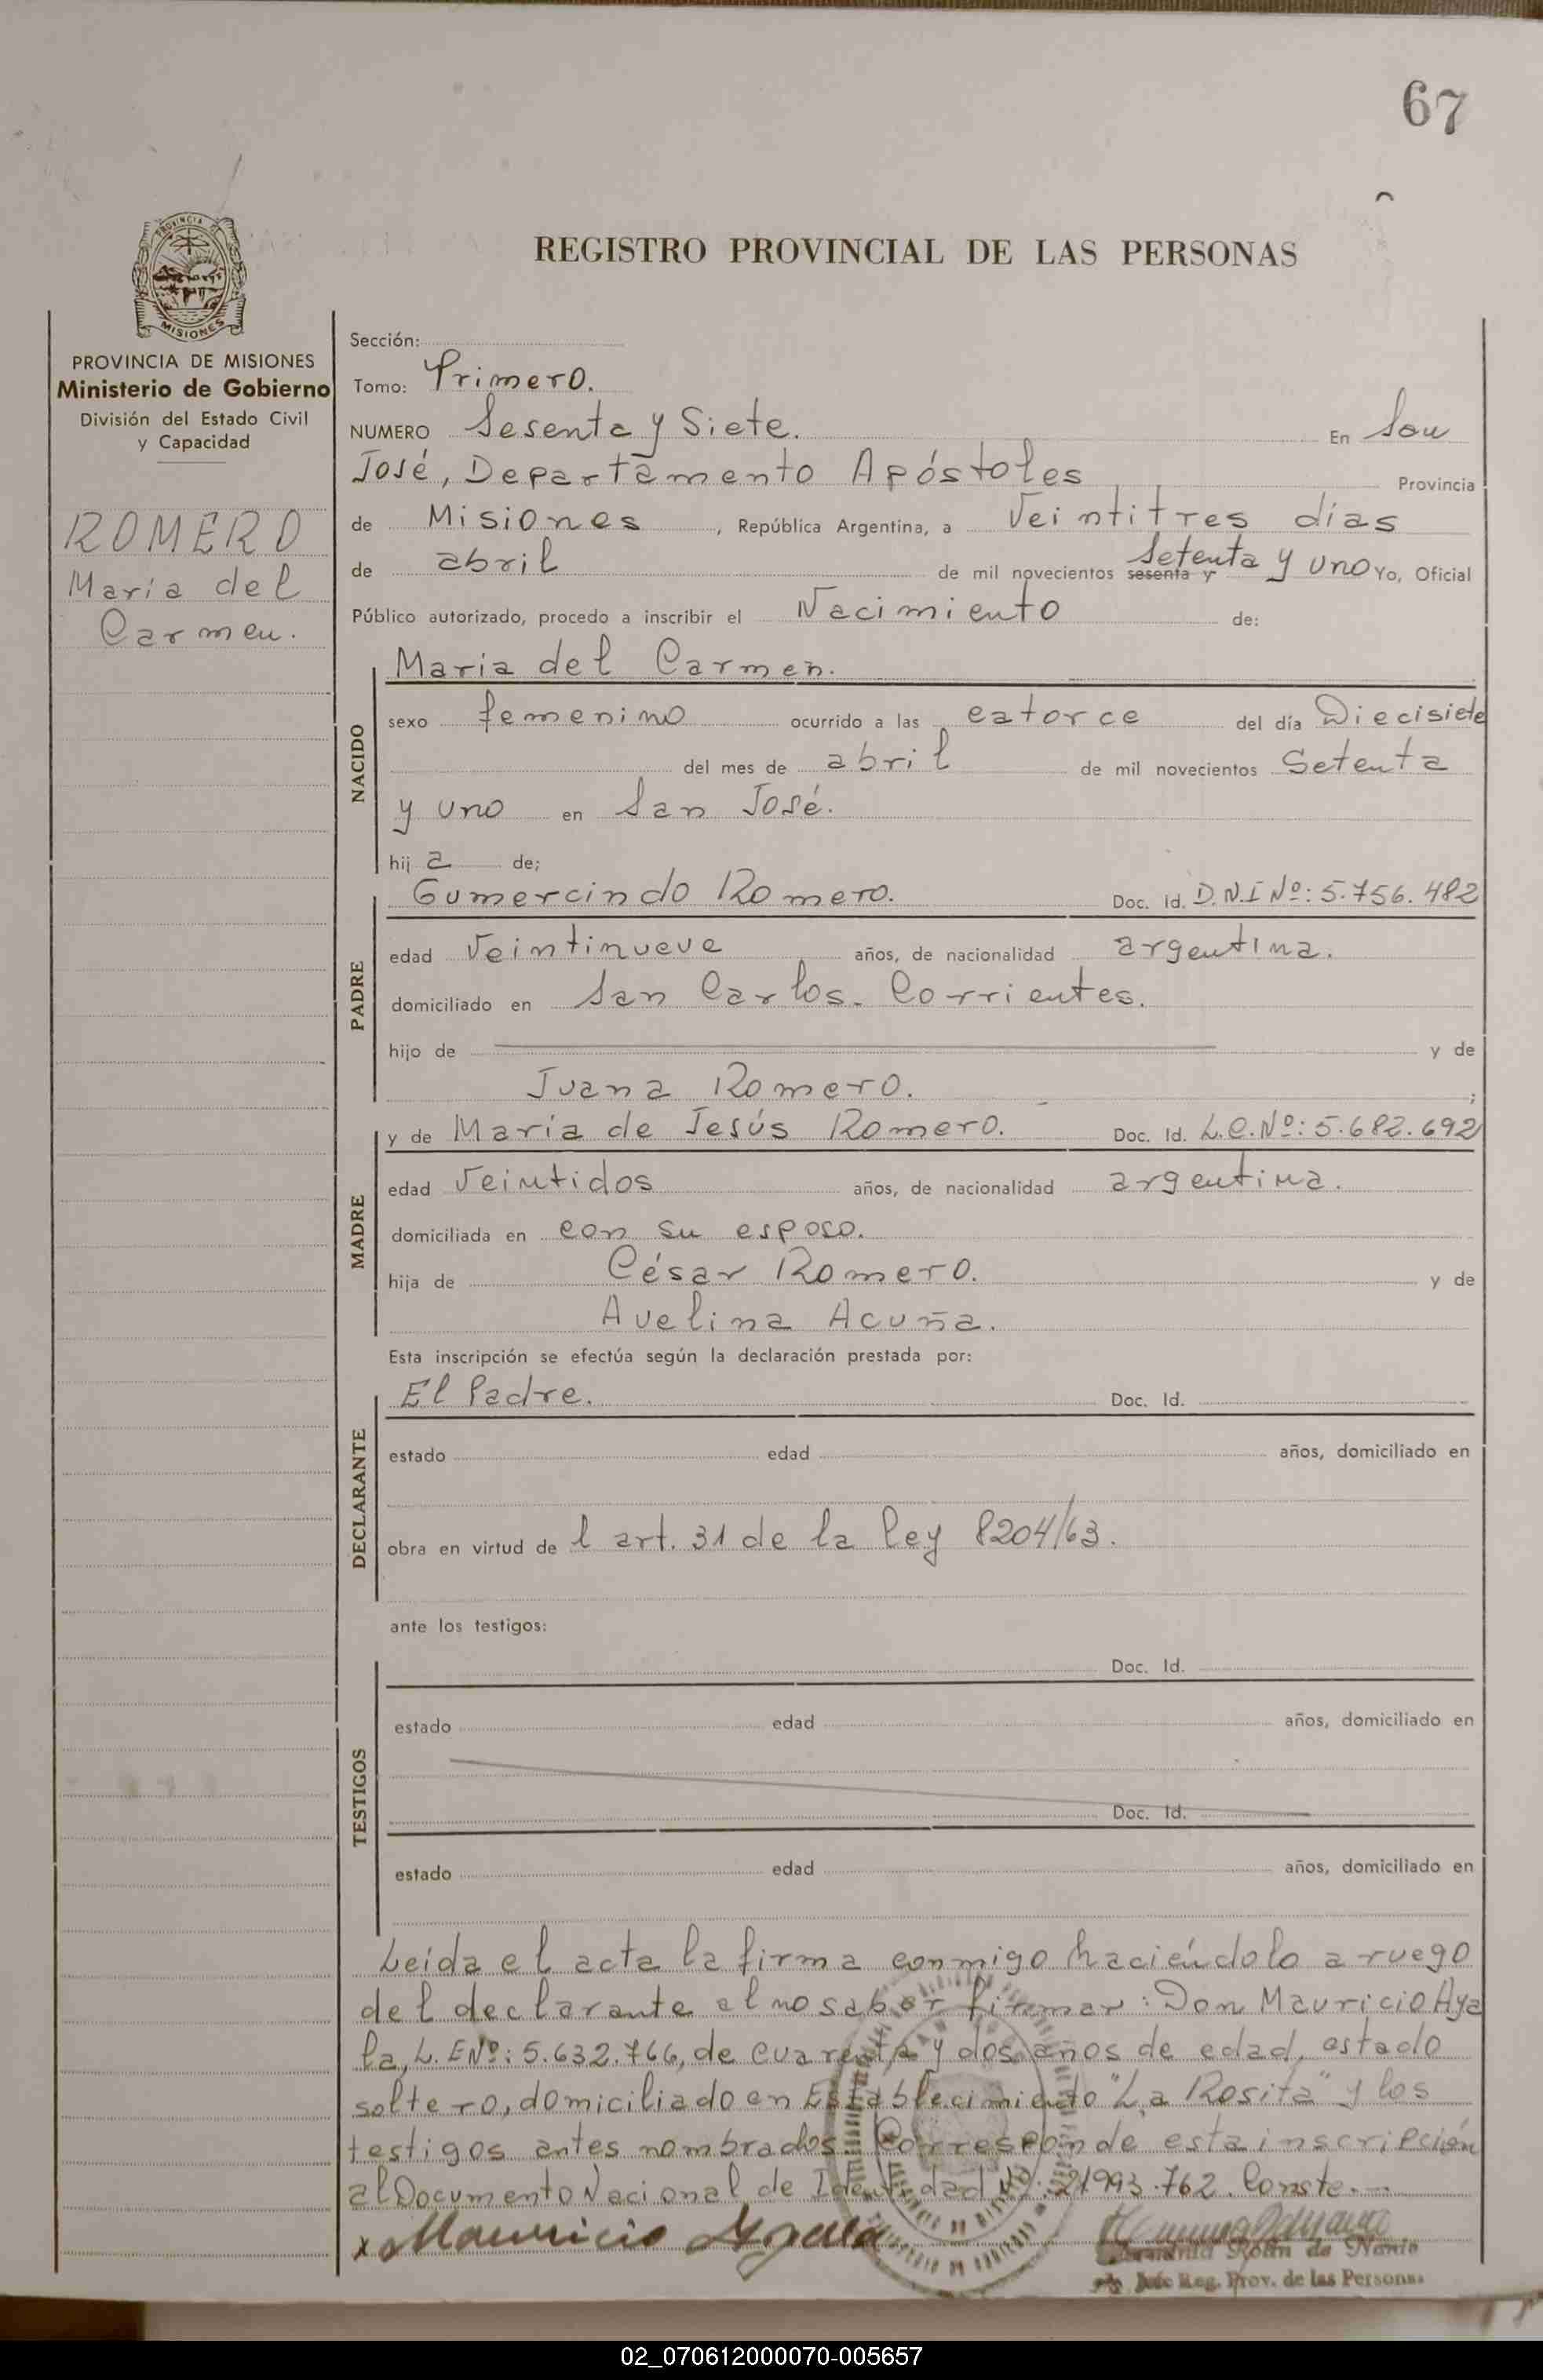 67
REGISTRO PROVINCIAL DE LAS PERSONAS
PROVINCIA DE MISIONES
Ministerio de Gobierno
División del Estado Civil
y Capacidad
ROMERO
María del
Carmen.
Sección:
Tomo: Primero.
NUMERO Sesenta y Siete. En San
José, Departamento Apóstoles Provincia
de Misiones, República Argentina, a Veintitres días
de abril de mil novecientos sesenta y Setenta y uno Yo, Oficial
Público autorizado, procedo a inscribir el Nacimiento de:
NACIDO
Maria del Carmen.
sexo femenino ocurrido a las catorce del día Diecisiete
del mes de abril de mil novecientos Setenta
y uno en San José.
hija de;
PADRE
Gumercindo Romero. Doc. Id. D.N.I Nº: 5.756.482
edad Veintinueve años, de nacionalidad argentina.
domiciliado en San Carlos. Corrientes.
hijo de y de
Juana Romero. ;
MADRE
y de María de Jesús Romero. Doc. Id. L.C.Nº: 5.682.692
edad Veintidos años, de nacionalidad argentina.
domiciliada en con su esposo.
hija de César Romero. y de
Avelina Acuña.
Esta inscripción se efectúa según la declaración prestada por:
DECLARANTE
El Padre. Doc. Id.
estado edad años, domiciliado en
obra en virtud del art. 31 de la ley 8204/63.
ante los testigos:
TESTIGOS
Doc. Id.
estado edad años, domiciliado en
Doc. Id.
estado edad años, domiciliado en
Leída el acta la firma conmigo haciéndolo a ruego
del declarante al no saber firmar: Don Mauricio Aya
la, L.E Nº: 5.632.766, de cuarenta y dos años de edad, estado
soltero, domiciliado en Establecimiento "La Rosita" y los
testigos antes nombrados. Corresponde esta inscripción
al Documento Nacional de Identidad Nº: 21993.762. Conste.-
x Mauricio Ayala
de
Jefe Reg. Prov. de las Personas
02_070612000070-005657